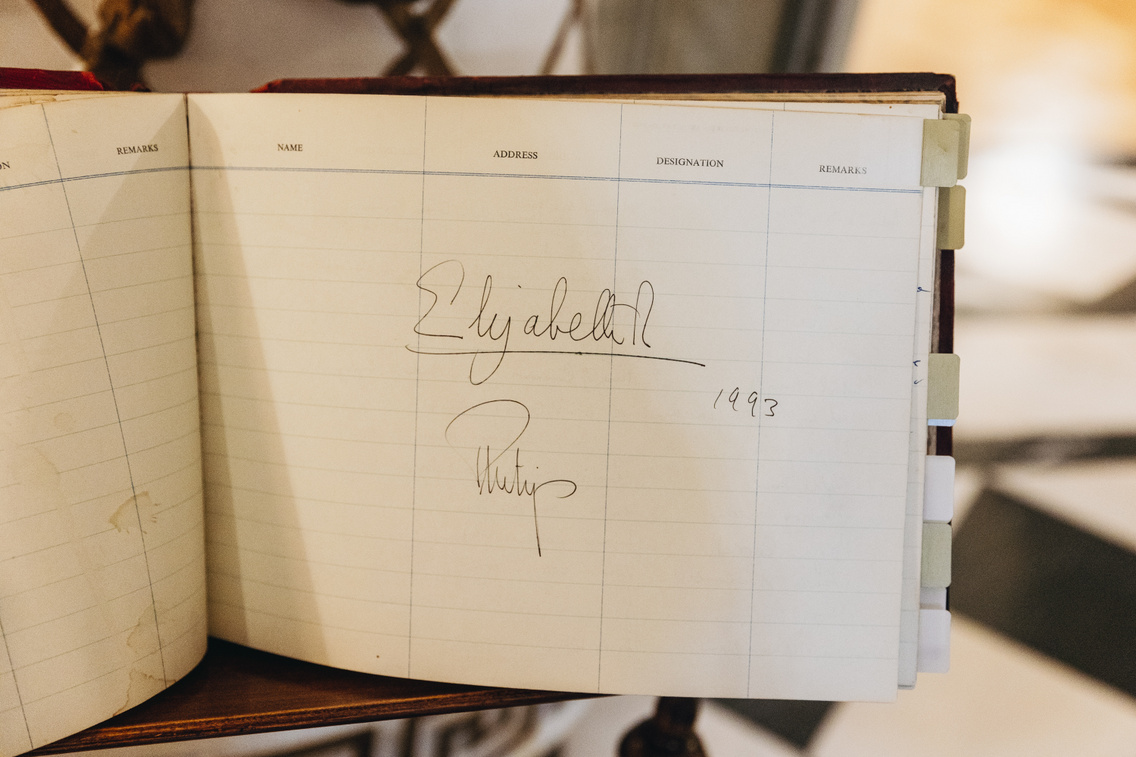 ON REMARKS NAME ADDRESS DESIGNATION REMARKS
Elizabeth R
1993
Philip